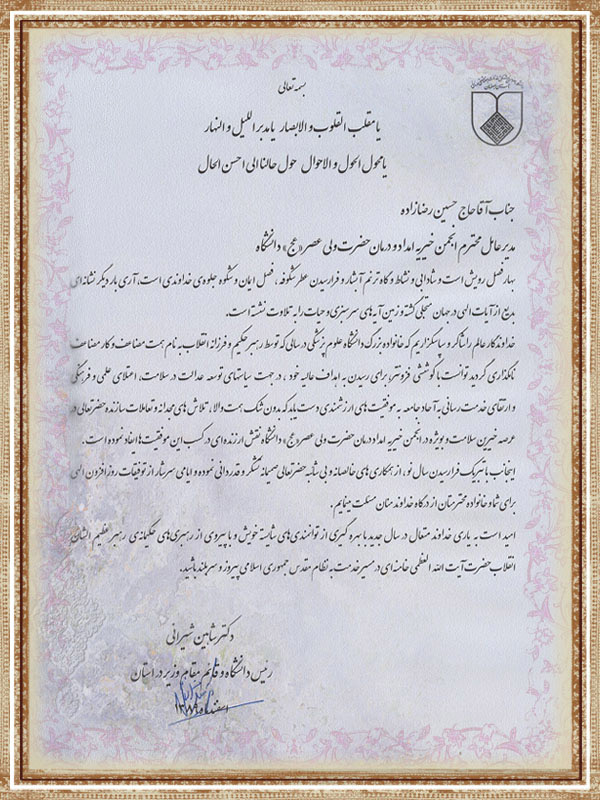 بسمه تعالی
یا مقلب القلوب و الابصار یا مدبر اللیل و النهار
یا محول الحول و الاحوال حول حالنا الی احسن الحال
جناب آقا حاج حسین رضازاده
مدیر عامل محترم انجمن خیریه امداد و درمان حضرت ولی عصر «عج» دانشگاه
بهار فصل رویش است و شادابی و نشاط و گاه ترنم آبشار و فرارسیدن عطر شکوفه ، فصل ایمان و شکوه جلوه‌ی خداوندی است، آری بار دیگر نشانه‌ای
بدیع از آیات الهی در جهان متجلی گشته و زمین آیه‌های سرسبزی و حیات را به تلاوت نشسته است.
خداوندگار عالم را شاکر و سپاسگزاریم که خانواده بزرگ دانشگاه علوم پزشکی در سالی که توسط رهبر حکیم و فرزانه انقلاب به نام همت مضاعف و کار مضاعف
نامگذاری گردید توانست با کوششی فزونتر، برای رسیدن به اهداف عالیه خود ، در جهت سیاستهای توسعه عدالت در سلامت، اعتلای علمی و فرهنگی
و ارتقای خدمت رسانی به آحاد جامعه به موفقیت های ارزشمندی دست یابد که بدون شک همت والا، تلاش های مجدانه و تعاملات سازنده حضرتعالی در
عرصه خیرین سلامت و بویژه در انجمن خیریه امداد و درمان حضرت ولی عصر «عج» دانشگاه نقش ارزنده ای در کسب این موفقیت ها ایفاد نموده است.
اینجانب با تبریک فرارسیدن سال نو ، از همکاری های خالصانه و بی شائبه حضرتعالی صمیمانه تشکر و قدردانی نموده و ایامی سرشار از توفیقات روزافزون الهی
برای شما و خانواده محترمتان از درگاه خداوند منان مسئلت می‌نمایم.
امید است به یاری خداوند متعال در سال جدید با بهره گیری از توانمندی های شایسته خویش و با پیروی از رهبری های حکیمانه‌ی رهبر عظیم الشان
انقلاب حضرت آیت الله العظمی خامنه ای در مسیر خدمت به نظام مقدس جمهوری اسلامی پیروز و سربلند باشید.
دکتر شاهین شیرانی
رئیس دانشگاه و قائم مقام وزیر در استان
اسفندماه ۱۳۸۹